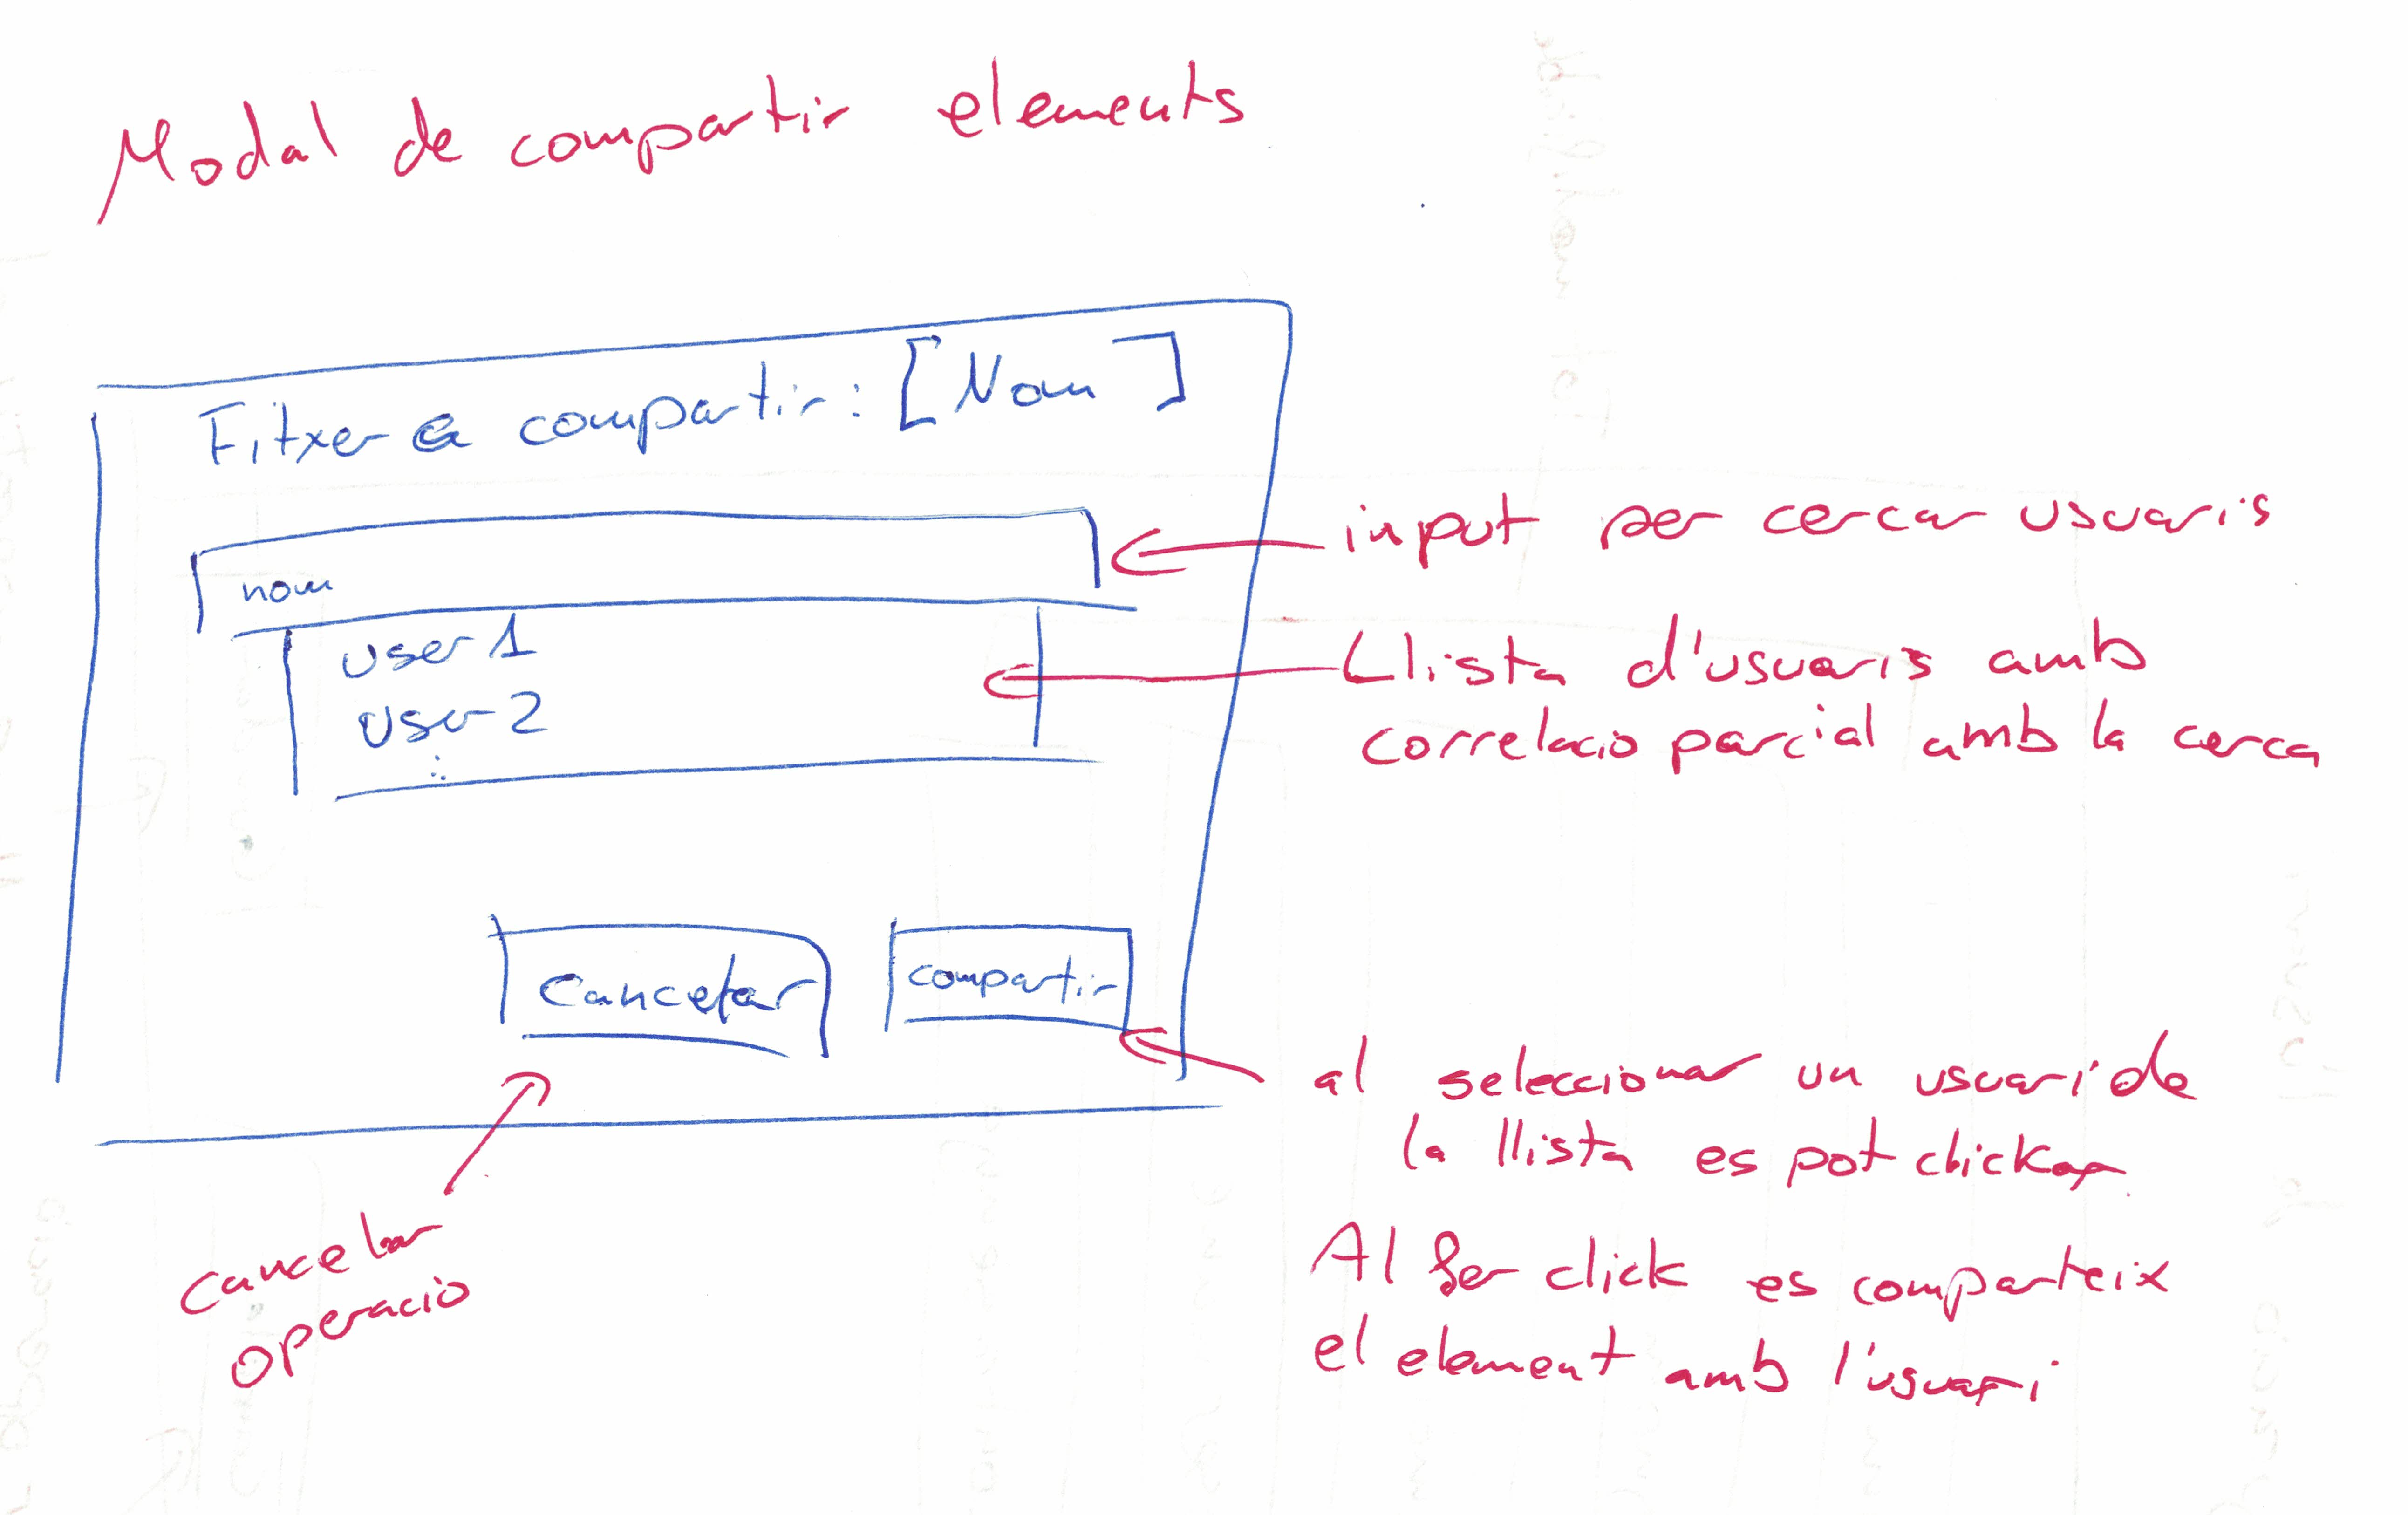 Modal de compartir elements
Fitxer a compartir: [Nom]
nom
user 1
user 2
:
Cancelar
compartir
input per cercar usuaris
Llista d'usuaris amb
correlacio parcial amb la cerca
al seleccionar un usuari de
la llista es pot clickar
Al fer click es comparteix
el element amb l'usuari
cancelar
operacio